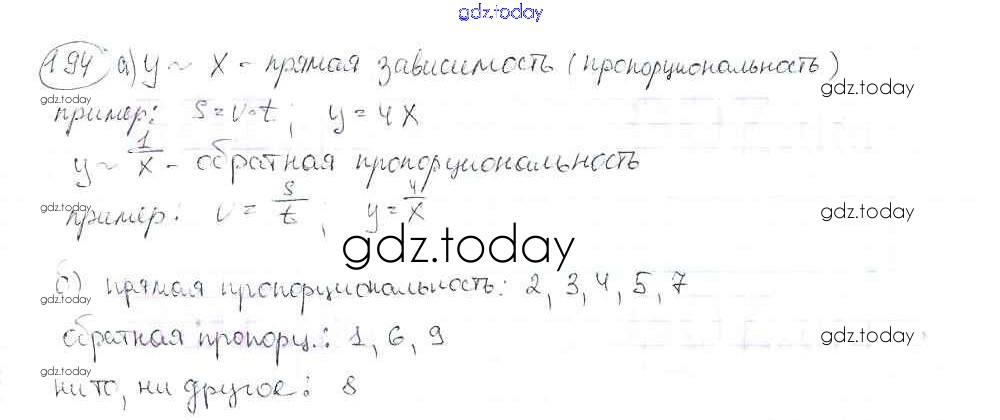 gdz.today
194 а) y ~ x - прямая зависимость (пропорциональность)
gdz.today gdz.today
пример: s = v·t ; y = 4x
y ~ 1/x - обратная пропорциональность
gdz.today gdz.today
пример: v = s/t ; y = 4/x
gdz.today
б) прямая пропорциональность: 2, 3, 4, 5, 7
gdz.today
обратная пропорц.: 1, 6, 9
gdz.today
gdz.today
ни то, ни другое: 8